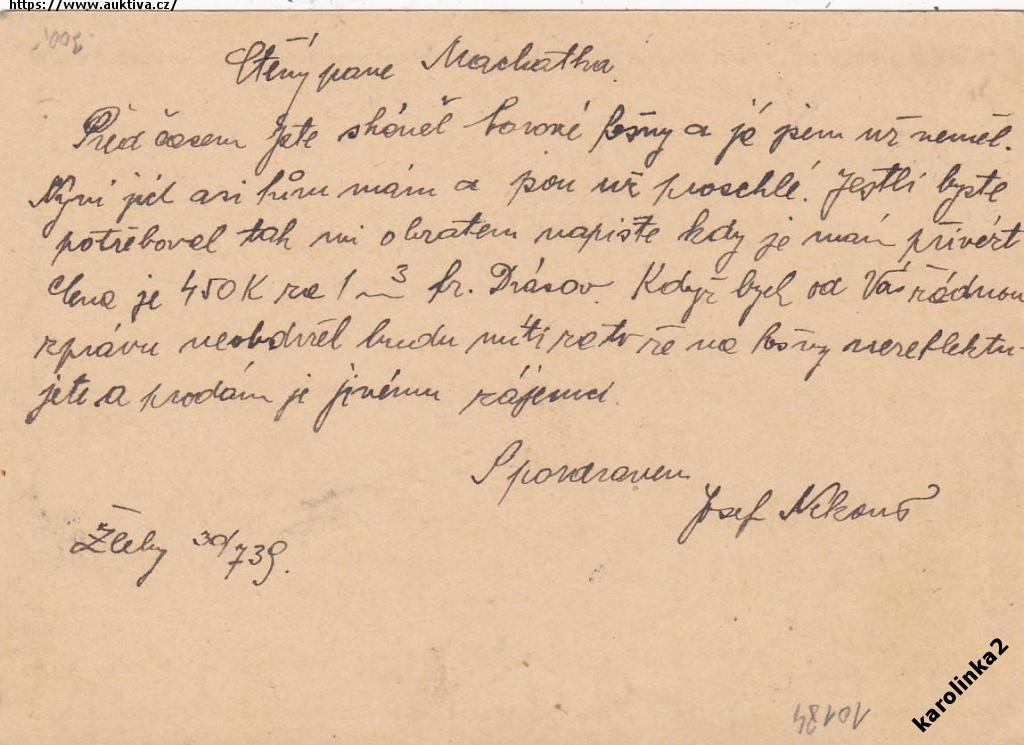 https://www.auktiva.cz/
Ctěný pane Machatka.
Před časem jste sháněl borové fošny a já jsem už neměl.
Nyní jich asi mám a jsou už proschlé. Jestli byste
potřeboval tak mi obratem napište kdy je mám přivézt
Cena je 450 K za 1 m3 fr. Drásov. Když bych od Vás žádnou
zprávu neobdržel budu míti zato že na fošny nereflektu-
jete a prodám je jinému zájemci.
S pozdravem
Josef
Žleby 30/739.
10184
karolinka2